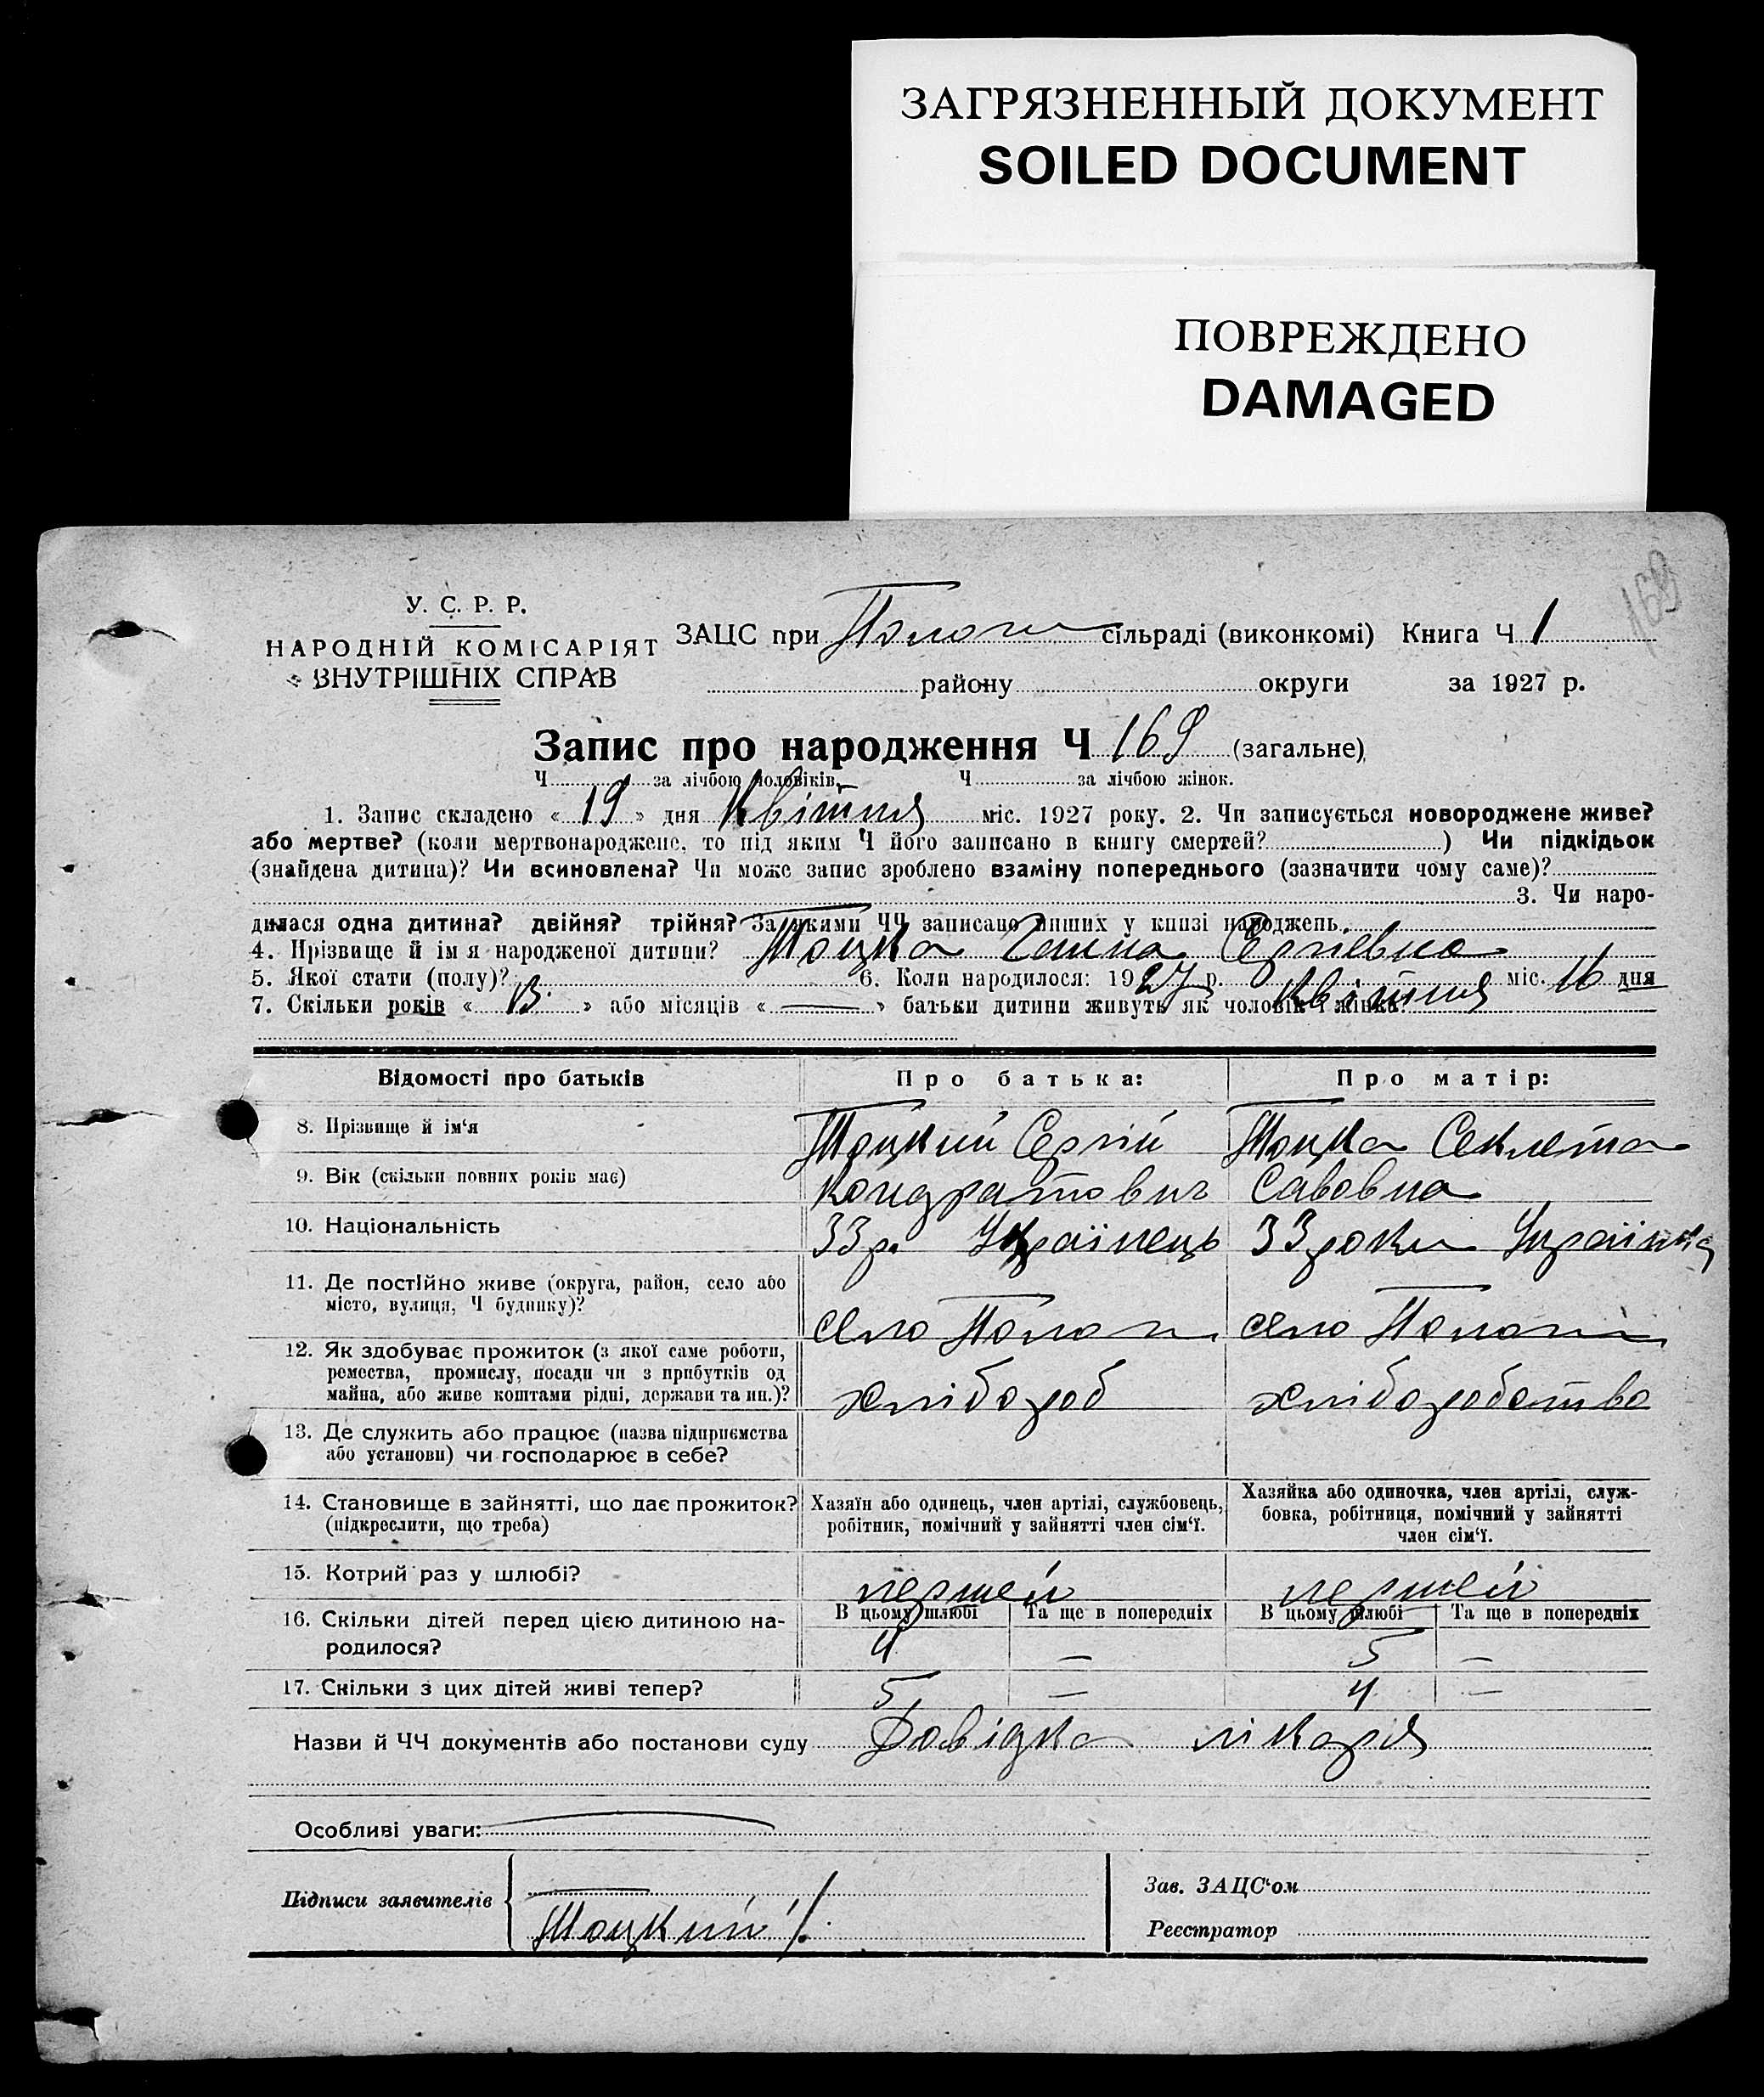 ЗАГРЯЗНЕННЫЙ ДОКУМЕНТ
SOILED DOCUMENT
ПОВРЕЖДЕНО
DAMAGED
169
У. С. Р. Р.
НАРОДНІЙ КОМІСАРІЯТ
ВНУТРІШНІХ СПРАВ
ЗАЦС при Пологи сільраді (виконкомі) Книга Ч 1
району округи за 1927 р.
Запис про народження Ч 169 (загальне)
Ч за лічбою чоловіків. Ч за лічбою жінок.
1. Запис складено « 19 » дня Квітня міс. 1927 року. 2. Чи записується новороджене живе?
або мертве? (коли мертвонароджене, то під яким Ч його записано в книгу смертей? ) Чи підкідьок
(знайдена дитина)? Чи всиновлена? Чи може запис зроблено взаміну попереднього (зазначити чому саме)?
3. Чи наро-
дилася одна дитина? двійня? трійня? За якими ЧЧ записано инших у книзі народжень
4. Прізвище й ім я народженої дитини? Тоцка Ганна Сергіевна
5. Якої стати (полу)? 6. Коли народилося: 1927 р. Квітня міс. 16 дня
7. Скільки років « 13 » або місяців « — » батьки дитини живуть як чоловік і жінка?
Відомості про батьків Про батька: Про матір:
8. Прізвище й ім‘я Тоцкий Сергій Тоцка Секлета
9. Вік (скільки повних років має) Кондратович Савовна
10. Національність 33 р. Українець 33 роки Українка
11. Де постійно живе (округа, район, село або
місто, вулиця, Ч будинку)? село Пологи село Пологи
12. Як здобуває прожиток (з якої саме роботи,
ремества, промислу, посади чи з прибутків од
майна, або живе коштами рідні, держави та ин.)? хлібороб хліборобство
13. Де служить або працює (назва підприємства
або установи) чи господарює в себе?
14. Становище в зайнятті, що дає прожиток? Хазяїн або одинець, член артілі, службовець, Хазяйка або одиночка, член артілі, служ-
(підкреслити, що треба) робітник, помічний у зайнятті член сім‘ї. бовка, робітниця, помічний у зайнятті
член сім‘ї.
15. Котрий раз у шлюбі? першей першей
16. Скільки дітей перед цією дитиною на- В цьому шлюбі Та ще в попередніх В цьому шлюбі Та ще в попередніх
родилося? 4 — 5 —
17. Скільки з цих дітей живі тепер? 5 — 4 —
Назви й ЧЧ документів або постанови суду Довідка лікаря
Особливі уваги:
Підписи заявителів Тоцкий
Зав. ЗАЦС‘ом
Реєстратор